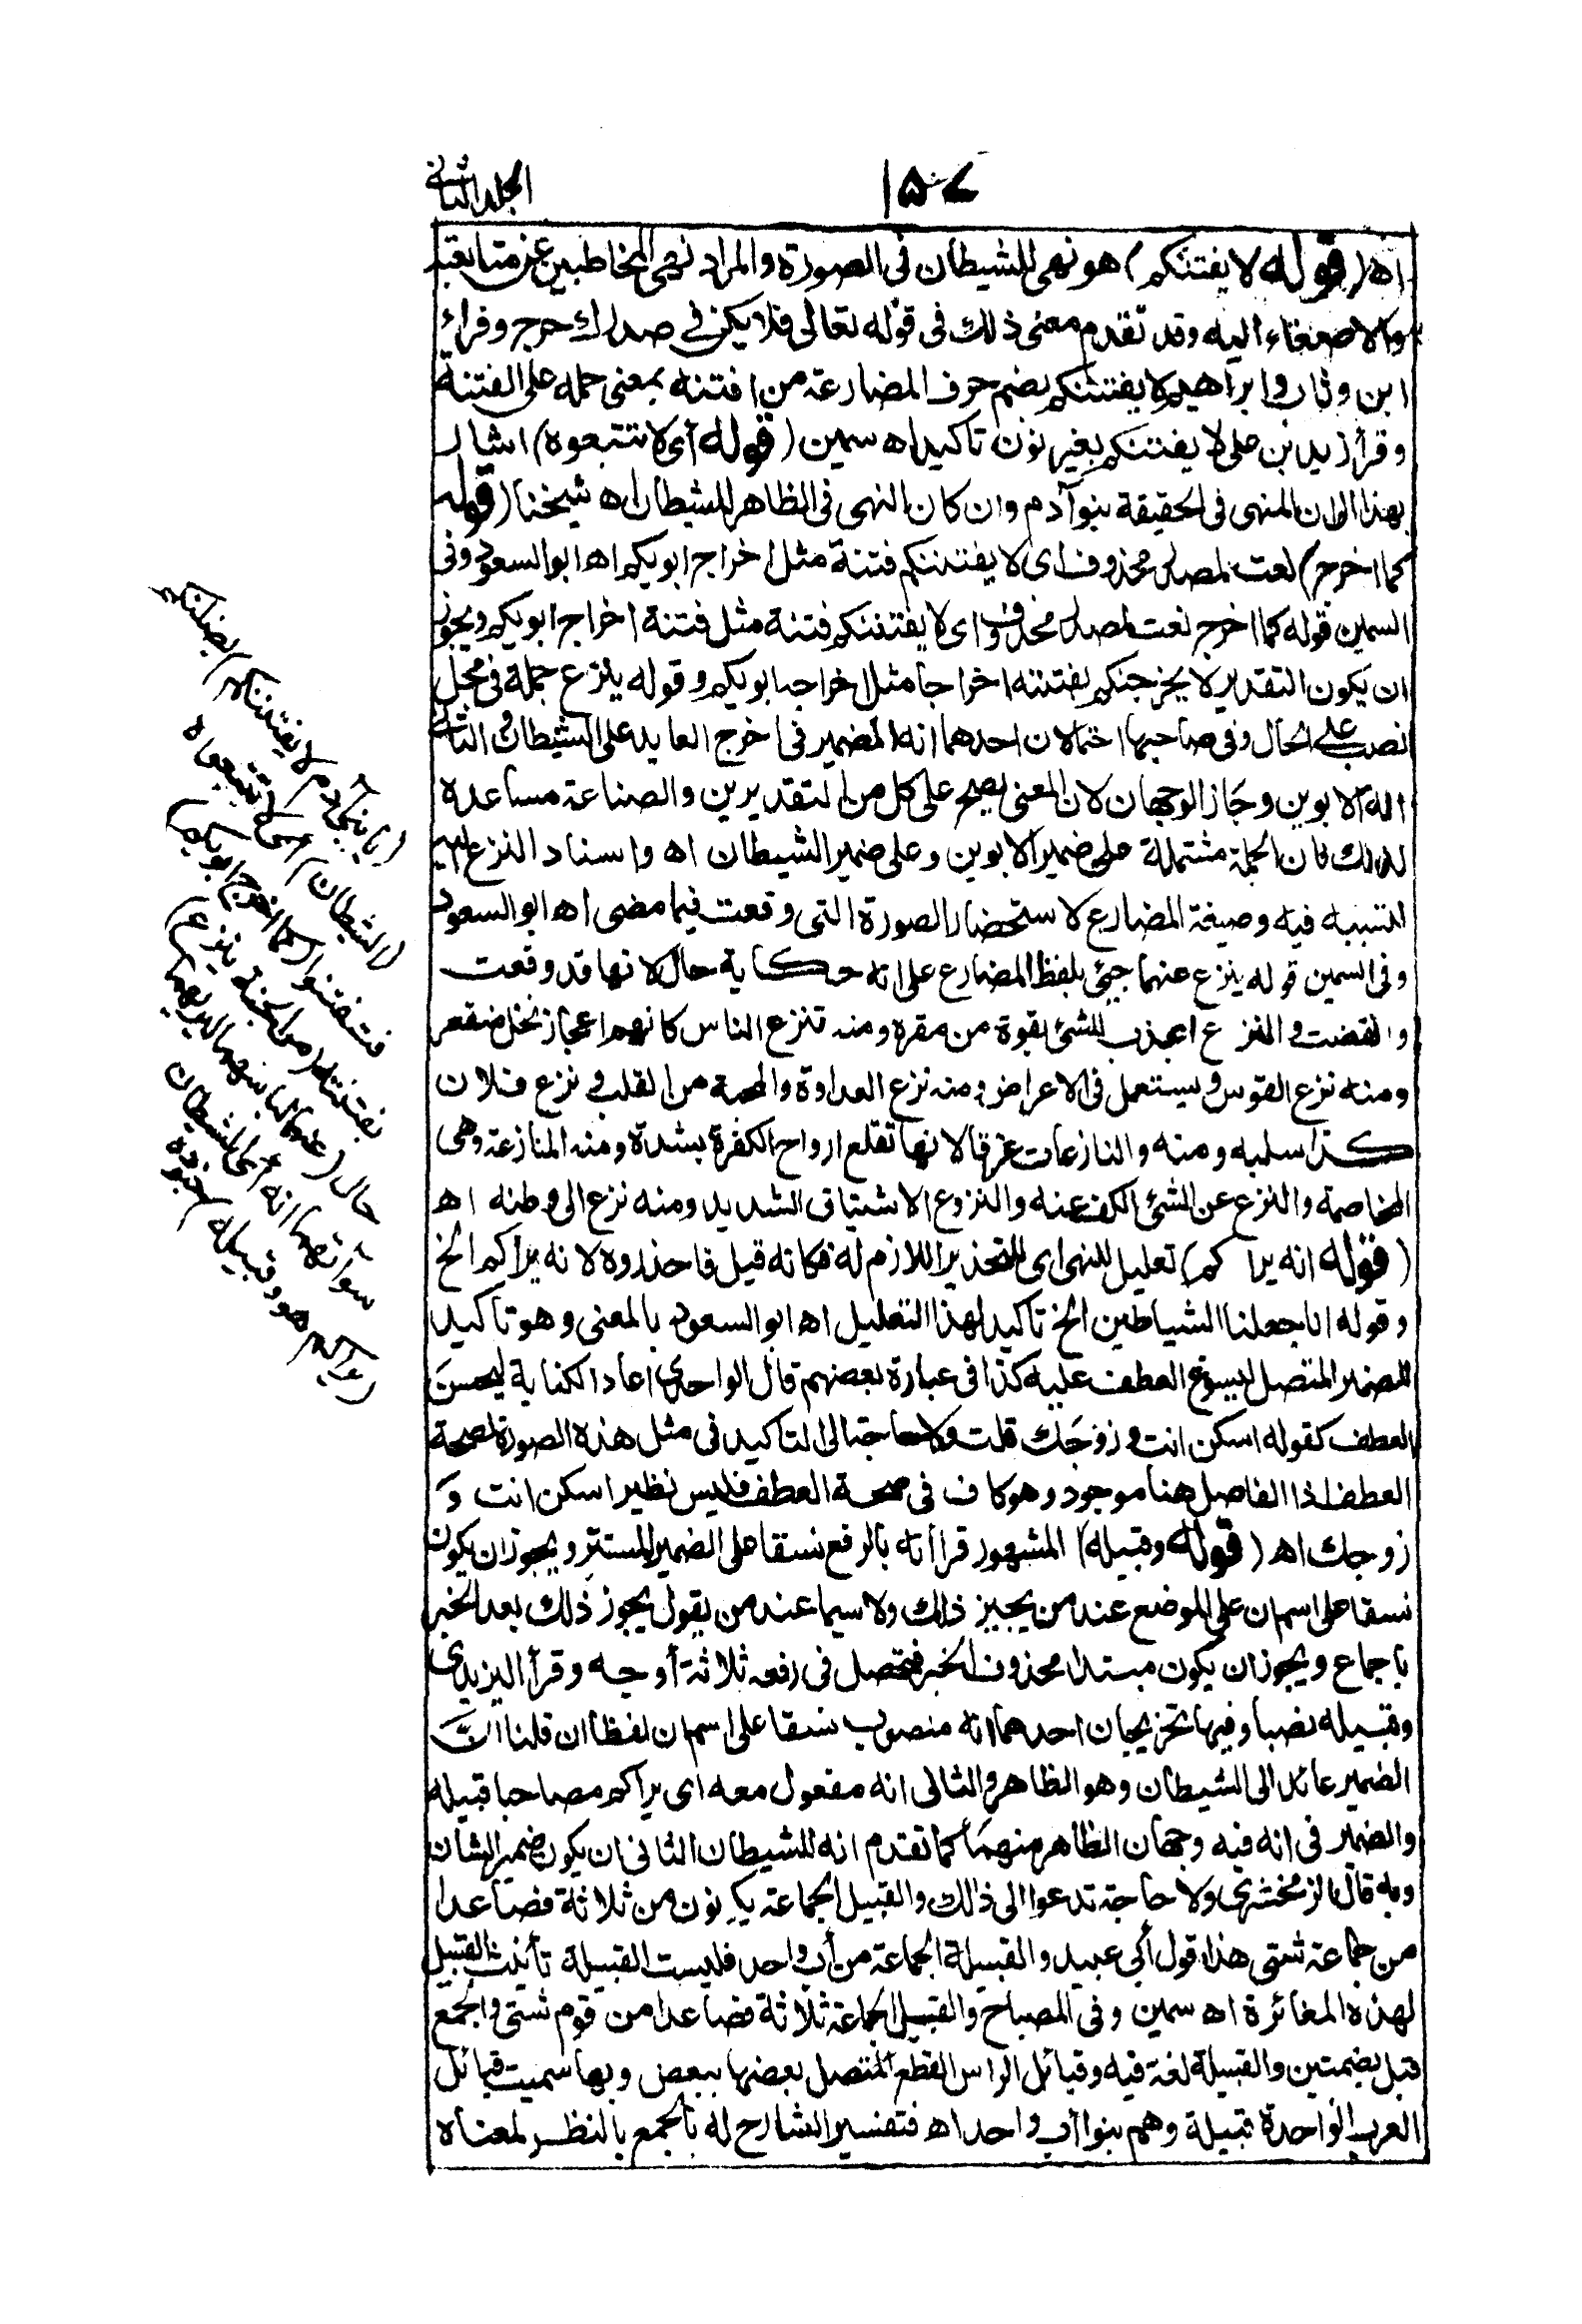 الجلد الثاني
اه (قوله لا يفتننكم) هو نهى للشيطان فى الصورة والمراد نهى المخاطبين عن متابعته
والاصغاء اليه وقد تقدم معنى ذلك فى قوله تعالى فلا يكن فى صدرك حرج وقراء
ابن وثاب وابراهيم لا يفتننكم بضم حرف المضارعة من افتنه بمعنى حمله على الفتنة
وقرأ زيد بن على لا يفتنكم بغير نون تاكيد اه سمين (قوله أى لا تتبعوه) اشار
بهذا الى ان المنهى فى الحقيقة بنو آدم وان كان النهى فى الظاهر للشيطان اه شيخنا (قوله
كما اخرج) نعت لمصدر محذوف اى لا يفتننكم فتنة مثل اخراج ابويكم اه ابو السعود وفى
السمين قوله كما اخرج نعت لمصدر محذوف اى لا يفتننكم فتنة مثل فتنة اخراج ابويكم ويجوز
ان يكون التقدير لا يخرجنكم بفتنته اخراجا مثل اخراجه ابويكم وقوله ينزع جملة فى محل
نصب على الحال وفى صاحبها احتمالان احدهما انه الضمير فى اخرج العايد على الشيطان والثانى
انه الابوين وجاز الوجهان لان المعنى يصح على كل من التقديرين والصناعة مساعدة
لذلك فان الجملة مشتملة على ضمير الابوين وعلى ضمير الشيطان اه واسناد النزع اليه
للتسببه فيه وصيغة المضارع لاستحضار الصورة التى وقعت فيما مضى اه ابو السعود
وفى السمين قوله ينزع عنهما جيئ بلفظ المضارع على انه حكاية حال لانها قد وقعت
وانقضت والنزع الجذب للشئ بقوة من مقره ومنه تنزع الناس كانهم اعجاز نخل منقعر
ومنه نزع القوس ويستعمل فى الاعراض ومنه نزع العداوة والمحبة من القلب ونزع فلان
كذا سلبه ومنه والنازعات غرقا لانها تقلع ارواح الكفرة بشدة ومنه المنازعة وهى
المخاصمة والنزع عن الشئ الكف عنه والنزوع الاشتياق الشديد ومنه نزع الى وطنه اه
(قوله انه يراكم) تعليل للنهى اى للتحذير اللازم له فكانه قيل فاحذروه لانه يراكم الخ
وقوله انا جعلنا الشياطين الخ تاكيد لهذا التعليل اه ابو السعود بالمعنى وهو تاكيد
للضمير المتصل ليسوغ العطف عليه كذا فى عبارة بعضهم قال الواحدى اعاد الكناية ليحسن
العطف كقوله اسكن انت وزوجك قلت ولا حاجة الى التاكيد فى مثل هذه الصورة لصحة
العطف اذ الفاصل هنا موجود وهو كاف فى صحة العطف فليس نظير اسكن انت و
زوجك اه (قوله وقبيله) المشهور قراأته بالرفع نسقا على الضمير المستتر ويجوز ان يكون
نسقا على اسم ان على الموضع عند من يجيز ذلك ولا سيما عند من يقول يجوز ذلك بعد الخبر
باجماع ويجوز ان يكون مبتدا محذوف الخبر فتحصل فى رفعه ثلاثة أوجه وقرأ اليزيدى
وقبيله نصبا وفيها تخريجان احدهما انه منصوب نسقا على اسم ان لفظا ان قلنا ان
الضمير عائد الى الشيطان وهو الظاهر والثانى انه مفعول معه اى يراكم مصاحبا قبيله
والضمير فى انه فيه وجهان الظاهر منهما كما تقدم انه للشيطان الثانى ان يكون ضمير الشان
وبه قال الزمخشرى ولا حاجة تدعوا الى ذالك والقبيل الجماعة يكونون من ثلاثة فصاعدا
من جماعة شتى هذا قول أبى عبيد والقبيلة الجماعة من أب واحد فليست القبيلة تأنيث القبيل
لهذه المغائرة اه سمين وفى المصباح والقبيل الجماعة ثلاثة فصاعدا من قوم شتى والجمع
قبل بضمتين والقبيلة لغة فيه وقبائل الراس القطع المتصل بعضها ببعض وبها سميت قبائل
العرب الواحدة قبيلة وهم بنوا أب واحد اه فتفسير الشارح له بالجمع بالنظر لمعناه
(يا بنى آدم لا يفتننكم) يضلنكم
(الشيطان) اى لا تتبعوه
فتفتنوا (كما اخرج ابويكم)
بفتنته (من الجنة ينزع)
حال (عنهما لباسهما ليريهما
سوآتهما انه) اى الشيطان
(يراكم هو وقبيله) جنوده